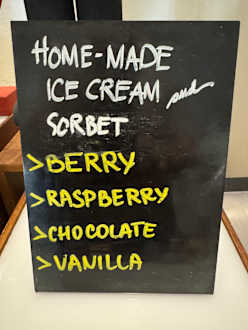 HOME-MADE
ICE CREAM and
SORBET
>BERRY
>RASPBERRY
>CHOCOLATE
>VANILLA